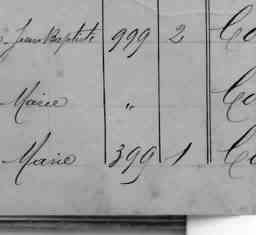 Jean Baptiste 999 2 Co
Marie " Co
Marie 399 1 Co